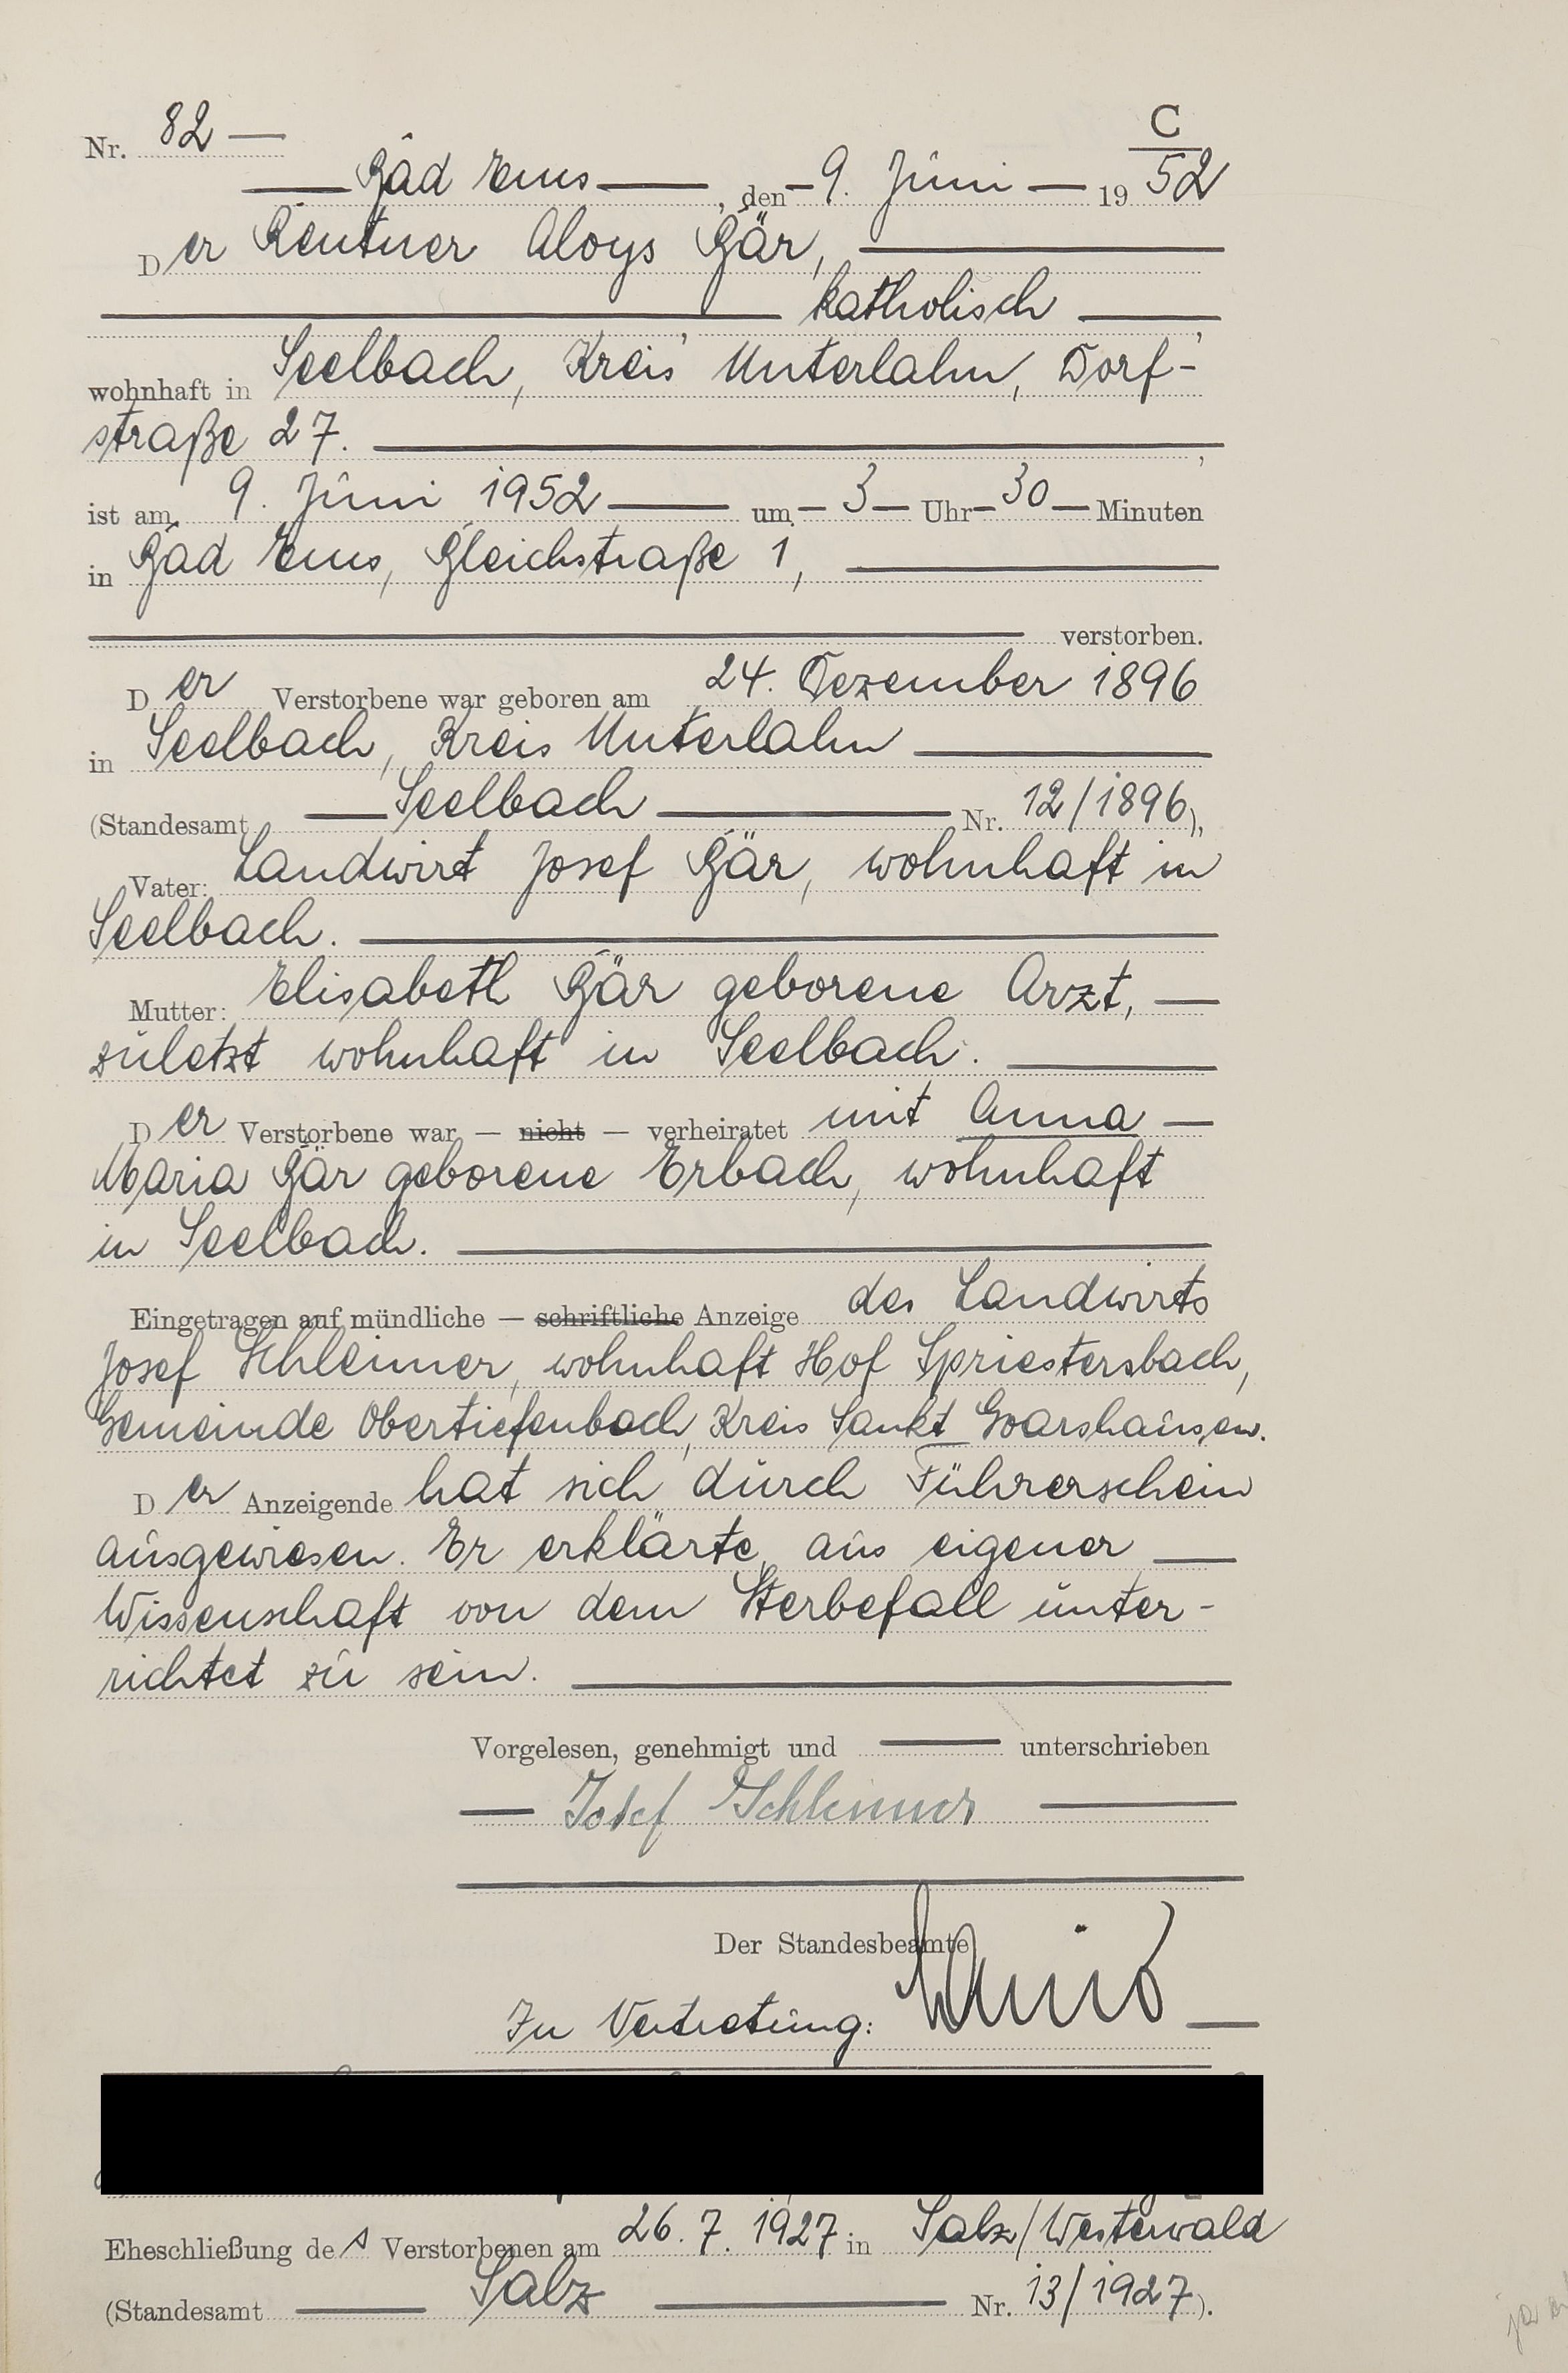 C
Nr. 82 —
Bad Ems, den 9. Juni 1952
Der Rentner Aloys Bär,
katholisch,
wohnhaft in Seelbach, Kreis Unterlahn, Dorf-
straße 27.
ist am 9. Juni 1952 um 3 Uhr 30 Minuten
in Bad Ems, Bleichstraße 1,
verstorben.
Der Verstorbene war geboren am 24. Dezember 1896
in Seelbach, Kreis Unterlahn
(Standesamt Seelbach Nr. 12/1896),
Vater: Landwirt Josef Bär, wohnhaft in
Seelbach.
Mutter: Elisabeth Bär geborene Arzt,
zuletzt wohnhaft in Seelbach.
Der Verstorbene war — nicht — verheiratet mit Anna
Maria Bär geborene Erbach, wohnhaft
in Seelbach.
Eingetragen auf mündliche — schriftliche Anzeige des Landwirts
Josef Schleimer, wohnhaft Hof Spriestersbach,
Gemeinde Obertiefenbach, Kreis Sankt Goarshausen.
Der Anzeigende hat sich durch Führerschein
ausgewiesen. Er erklärte, aus eigener
Wissenschaft von dem Sterbefall unter-
richtet zu sein.
Vorgelesen, genehmigt und unterschrieben
Josef Schleimer
Der Standesbeamte
In Vertretung:
Eheschließung des Verstorbenen am 26. 7. 1927 in Salz/Westerwald
(Standesamt Salz Nr. 13/1927).